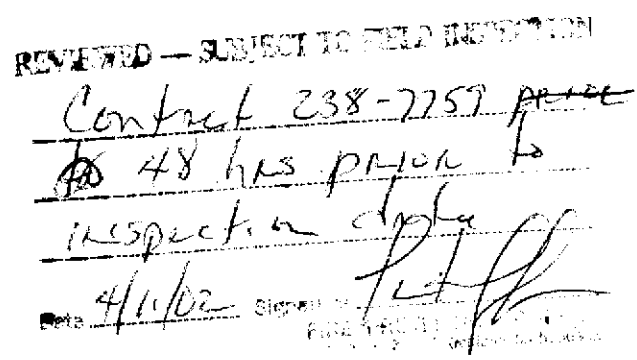 REVIEWED — SUBJECT TO FIELD INSPECTION
Contact 238-7759
48 hrs prior to
inspection date
Date 4/11/02 Signed